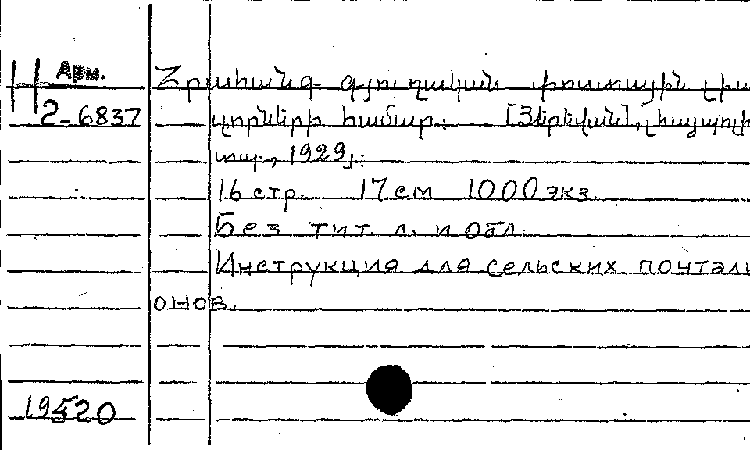 Арм.
Н
2-6837
Հրահանգ գյուղական փոստային լիա
զորների համար. [Յերեվան],
տպ., 1929]:
16 стр. 17 см 1000 экз.
Без тит. л. и обл.
Инструкция для сельских почталь
онов.
19520